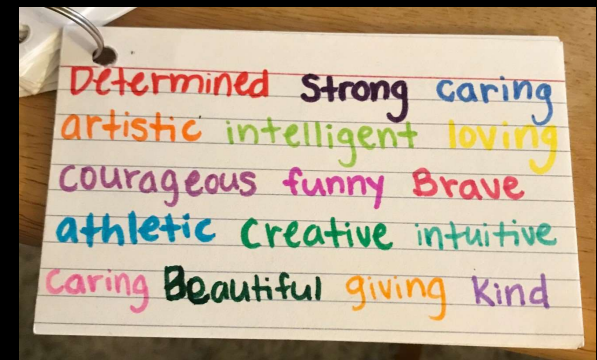 Determined Strong caring
artistic intelligent loving
courageous funny Brave
athletic Creative intuitive
caring Beautiful giving kind